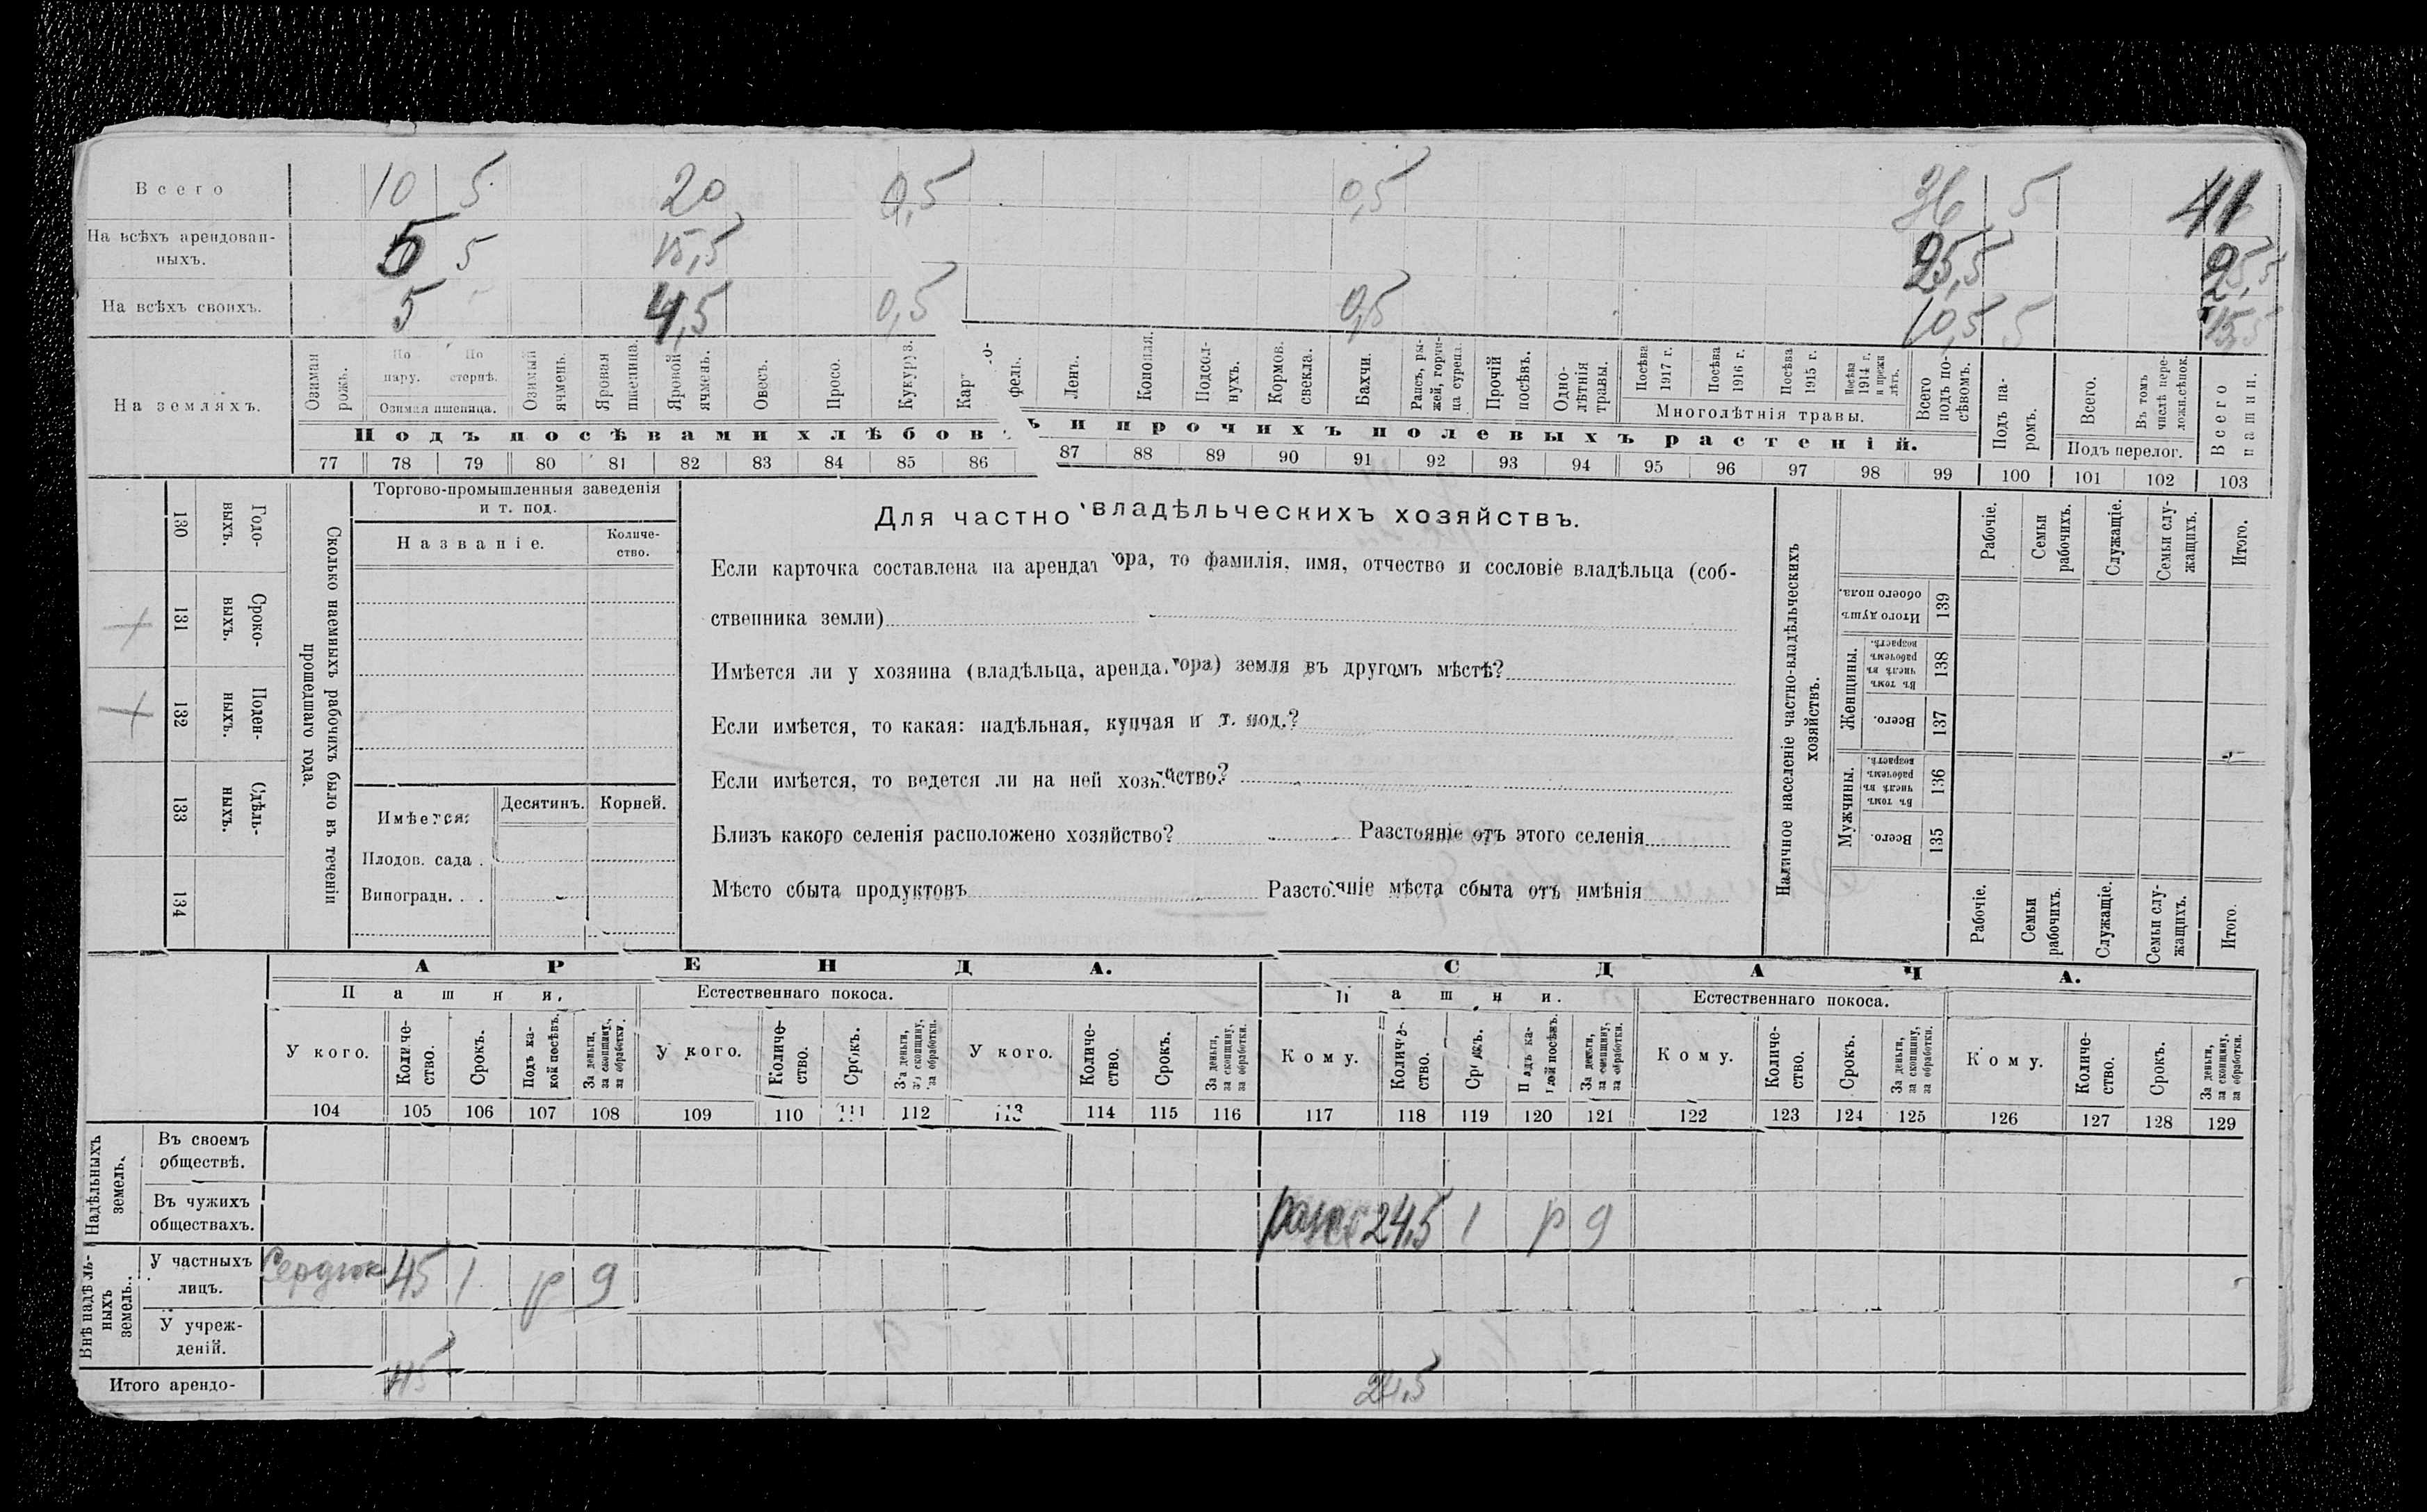 Всего 10 5 20 0,5 0,5 36 5 41
На всѣхъ арендован-
ныхъ. 5 5 15,5 25,5 25,5
На всѣхъ своихъ. 5 4,5 0,5 0,5 10,5 5 15,5
На земляхъ.
Озимая рожь.
По пару.
По стернѣ.
Озимая пшеница.
Озимый ячмень.
Яровая пшеница.
Яровой ячмень.
Овесъ.
Просо.
Кукуруз.
Карто-
фель.
Ленъ.
Конопля.
Подсол-
нухъ.
Кормов.
свекла.
Бахчи.
Рапсъ, ры-
жей, горчи-
ца сурепа.
Прочій
посѣвъ.
Одно-
лѣтнія
травы.
Посѣва
1917 г.
Посѣва
1916 г.
Посѣва
1915 г.
Посѣва
1914 г.
и прежн
лѣтъ.
Многолѣтнія травы.
Всего
подъ по-
сѣвомъ.
Подъ па-
ромъ.
Всего.
Въ томъ
числѣ пере-
ложн.сѣнок.
Подъ перелог.
Всего
пашни.
Подъ посѣвами хлѣбовъ и прочихъ полевыхъ растеній.
77 78 79 80 81 82 83 84 85 86 87 88 89 90 91 92 93 94 95 96 97 98 99 100 101 102 103
130 Годо-
выхъ.
131 Сроко-
выхъ.
132 Поден-
ныхъ.
133 Сдѣль-
ныхъ.
134
Сколько наемныхъ рабочихъ было въ теченіи
прошедшаго года.
Торгово-промышленныя заведенія
и т. под.
Названіе.
Количе-
ство.
Имѣется:
Десятинъ.
Корней.
Плодов. сада .
Виноградн. . .
Для частновладѣльческихъ хозяйствъ.
Если карточка составлена на арендатора, то фамилія, имя, отчество и сословіе владѣльца (соб-
ственника земли)
Имѣется ли у хозяина (владѣльца, арендатора) земля въ другомъ мѣстѣ?
Если имѣется, то какая: надѣльная, купчая и т. под.?
Если имѣется, то ведется ли на ней хозяйство?
Близъ какого селенія расположено хозяйство? Разстояніе отъ этого селенія
Мѣсто сбыта продуктовъ Разстояніе мѣста сбыта отъ имѣнія
Наличное населеніе частно-владѣльческихъ
хозяйствъ.
Рабочіе.
Семьи
рабочихъ.
Служащіе.
Семьи слу-
жащихъ.
Итого.
Итого душъ
обоего пола.
139
Женщины.
Въ томъ
числѣ въ
рабочемъ
возрастѣ.
138
Всего.
137
Мужчины.
Въ томъ
числѣ въ
рабочемъ
возрастѣ.
136
Всего.
135
Рабочіе.
Семьи
рабочихъ.
Служащіе.
Семьи слу-
жащихъ.
Итого.
АРЕНДА.
СДАЧА.
Пашни.
Естественнаго покоса.
Пашни.
Естественнаго покоса.
У кого.
Количе-
ство.
Срокъ.
Подъ ка-
кой посѣвъ.
За деньги,
за скопщину,
за обработки.
У кого.
Количе-
ство.
Срокъ.
За деньги,
за скопщину,
за обработки.
У кого.
Количе-
ство.
Срокъ.
За деньги,
за скопщину,
за обработки.
Кому.
Количе-
ство.
Срокъ.
Подъ ка-
кой посѣвъ.
За деньги,
за скопщину,
за обработки.
Кому.
Количе-
ство.
Срокъ.
За деньги,
за скопщину,
за обработки.
Кому.
Количе-
ство.
Срокъ.
За деньги,
за скопщину,
за обработки.
104 105 106 107 108 109 110 111 112 113 114 115 116 117 118 119 120 121 122 123 124 125 126 127 128 129
Надѣльныхъ
земель.
Въ своемъ
обществѣ.
Въ чужихъ
обществахъ.
24,5 1 р д
Внѣ надѣль-
ныхъ
земель.
У частныхъ
лицъ.
Сердюк 45 1 р д
У учреж-
деній.
Итого арендо- 45 24,5